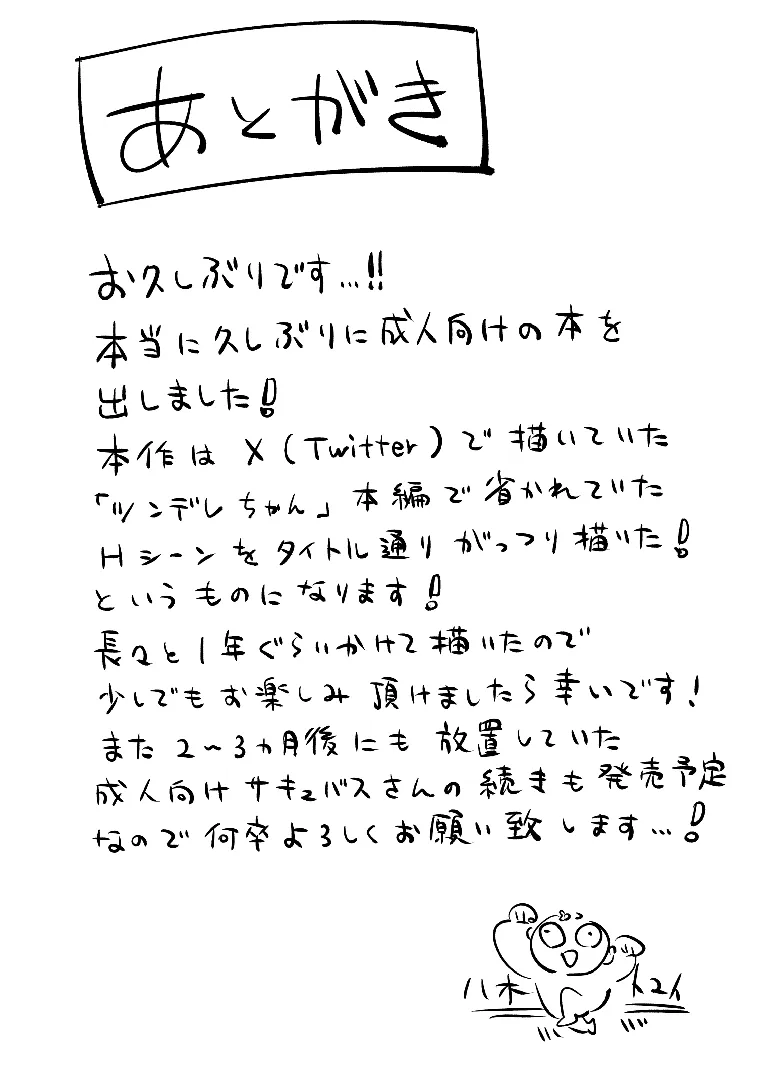 あとがき
お久しぶりです…!!
本当に久しぶりに成人向けの本を
出しました!
本作は X (Twitter) で 描いていた
「ツンデレちゃん」本編で省かれていた
Hシーンをタイトル通りがっつり描いた!
というものになります!
長々と1年ぐらいかけて描いたので
少しでもお楽しみ頂けましたら幸いです!
また2〜3ヵ月後にも放置していた
成人向けサキュバスさんの続きも発売予定
なので何卒よろしくお願い致します…!
八木 トユイ